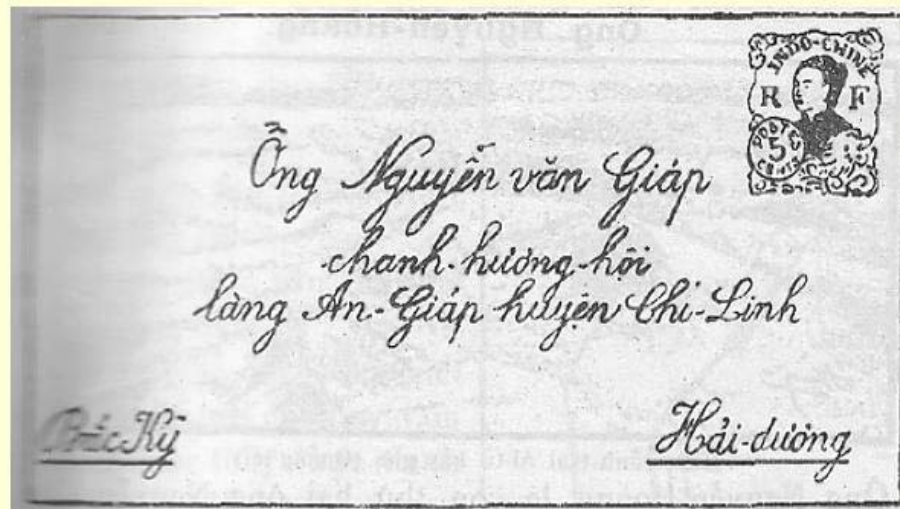 INDO-CHINE
R F
POSTES
5
CENTS
Ông Nguyễn văn Giáp
chanh-hương-hội
làng An-Giáp huyện Chí-Linh
Bắc Kỳ
Hải-dương